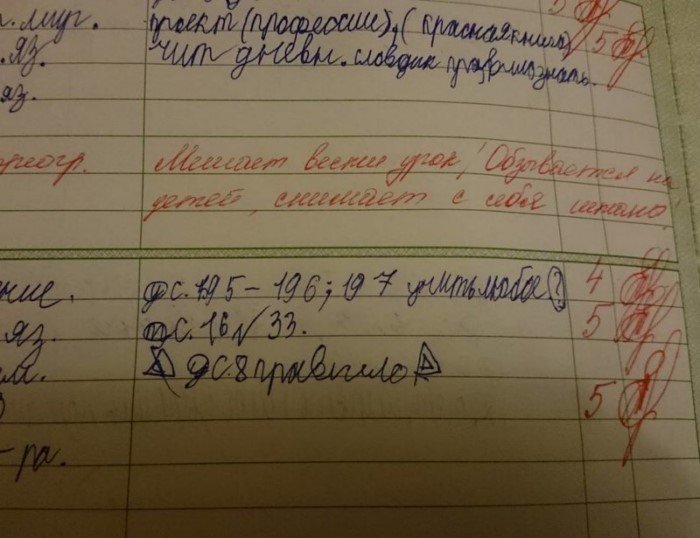 . мир. проект (профессии), (красная книга) 5
. яз. чит дневн. словарик правило знать. 5
яз.
реогр. Мешает вести урок, Обзывается на
детей, снимает с себя штаны
ние. с. 195 – 196; 197 учить любое 4
яз. с. 16 № 33. 5
м. с. 8 правило
5
-ра.